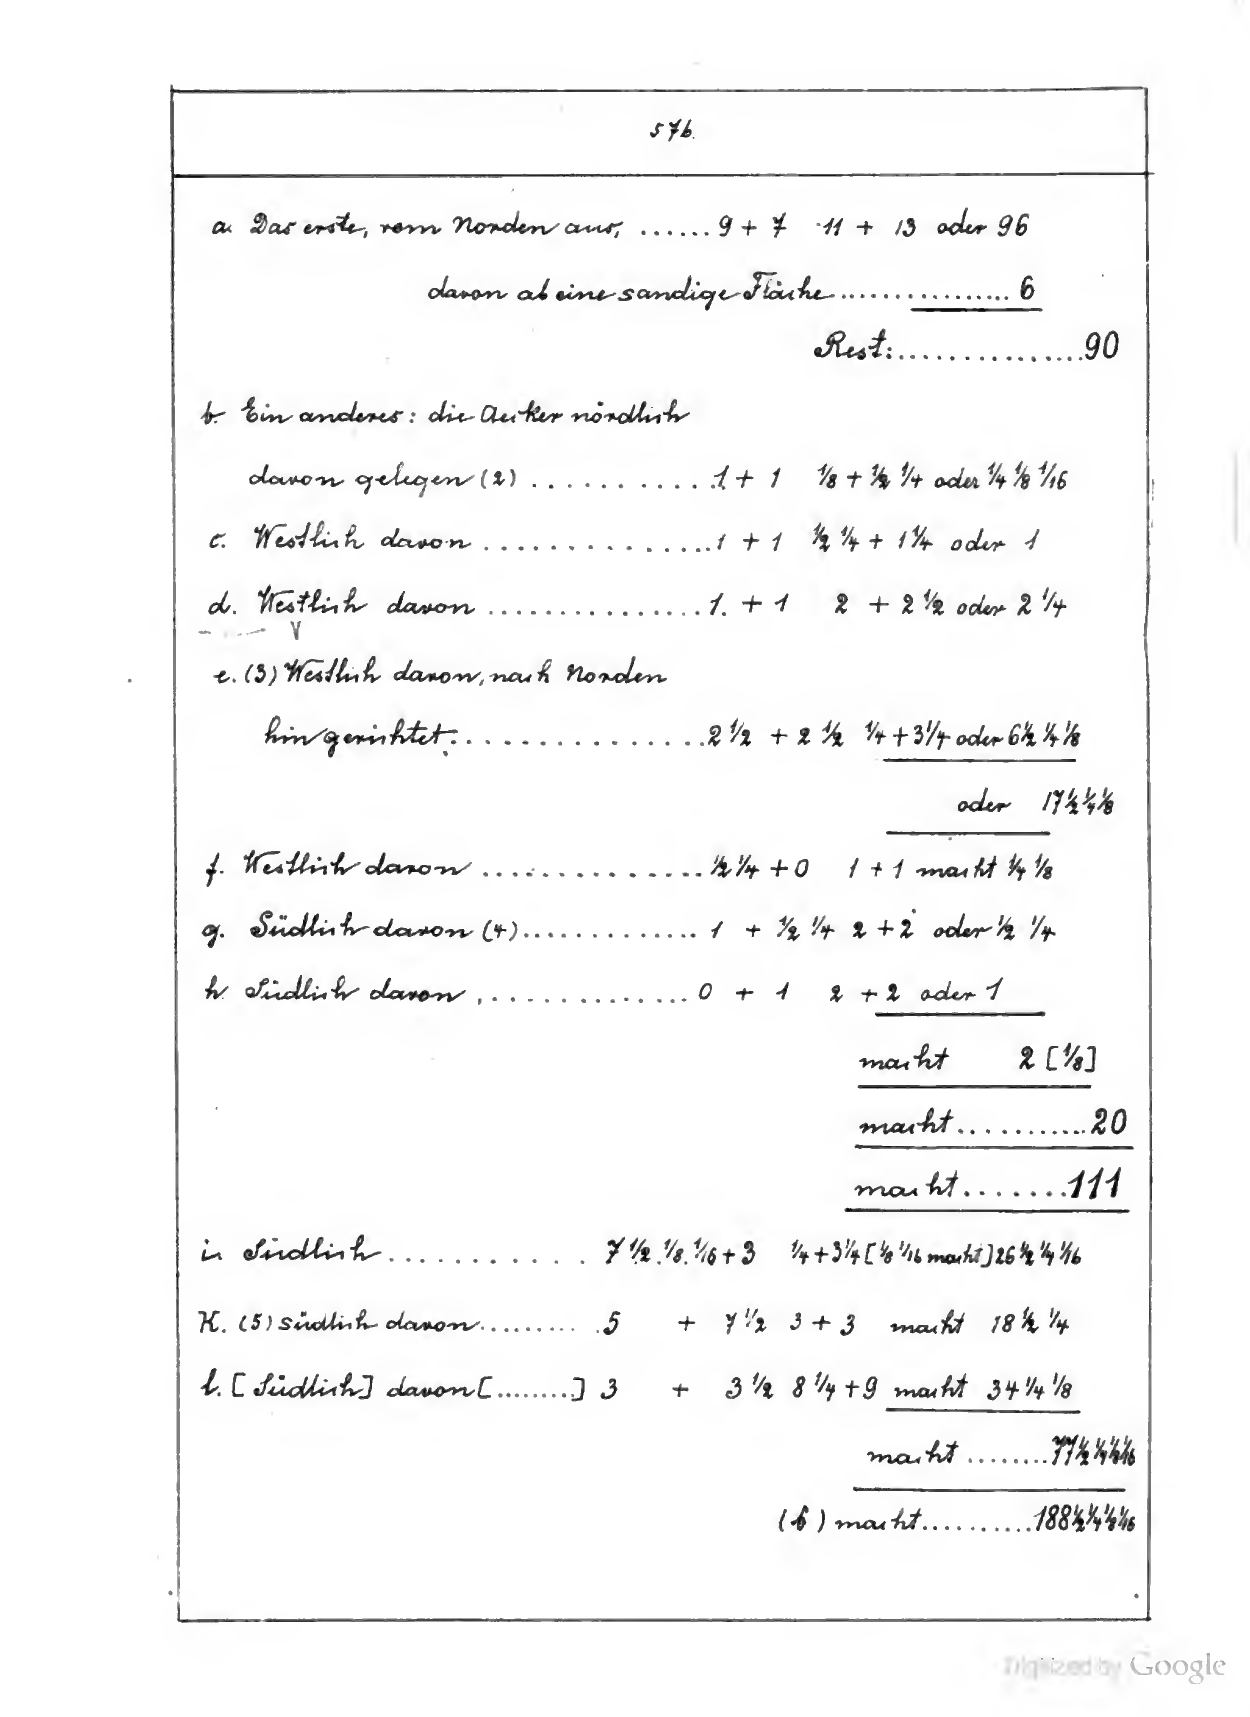 57b.
a. Das erste, vom Norden aus, ...... 9 + 7 11 + 13 oder 96
davon ab eine sandige Fläche ................ 6
Rest: ................ 90
b. Ein anderes: die Aecker nördlich
davon gelegen (2) ............ 1 + 1 1/8 + 1/2 1/4 oder 1/4 1/8 1/16
c. Westlich davon ............... 1 + 1 1/2 1/4 + 1 1/4 oder 1
d. Westlich davon ............... 1. + 1 2 + 2 1/2 oder 2 1/4
e. (3) Westlich davon, nach Norden
hin gerichtet: ................ 2 1/2 + 2 1/2 1/4 + 3 1/4 oder 6 1/2 1/4 1/8
oder 17 1/2 1/4 1/8
f. Westlich davon ............... 1/2 1/4 + 0 1 + 1 macht 1/4 1/8
g. Südlich davon (4) ............. 1 + 1/2 1/4 2 + 2 oder 1/2 1/4
h. Südlich davon, .............. 0 + 1 2 + 2 oder 1
macht 2 [1/8]
macht ........... 20
macht ....... 111
i. Südlich ............ 7 1/2 1/8 1/16 + 3 1/4 + 3 1/4 [1/8 1/16 macht] 26 1/2 1/4 1/16
K. (5) südlich davon ......... 5 + 7 1/2 3 + 3 macht 18 1/2 1/4
l. [Südlich] davon [.........] 3 + 3 1/2 8 1/4 + 9 macht 34 1/4 1/8
macht ........ 77 1/2 1/4 1/8 1/16
(6) macht .......... 188 1/2 1/4 1/8 1/16
Digitized by Google